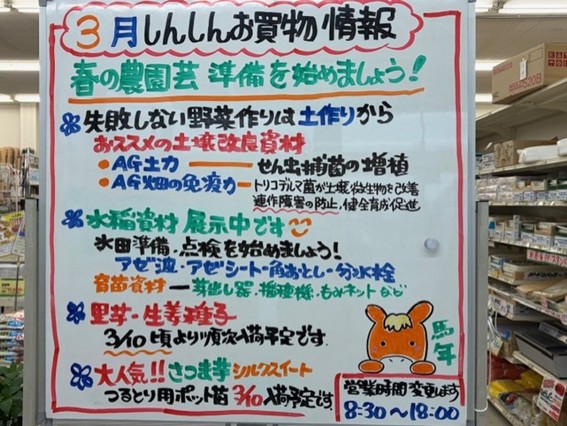 3月しんしんお買物情報
春の農園芸 準備を始めましょう!
失敗しない野菜作りは 土作りから
おススメの土壌改良資材
・AG土力 ー せん虫捕菌の増植
・AG畑の免疫力ー トリコデルマ菌が土壌微生物を改善
連作障害の防止、健全育成促進
水稲資材 展示中です
水田準備、点検を始めましょう!
アゼ波・アゼシート・角おとし・分水栓
育苗資材 ー 芽出し器、播種機、もみネットなど
里芋・生姜種子
3/10頃より順次入荷予定です.
大人気!! さつま芋 シルクスイート
つるとり用ポット苗 3/10入荷予定です.
馬年
営業時間変更します
8:30〜18:00